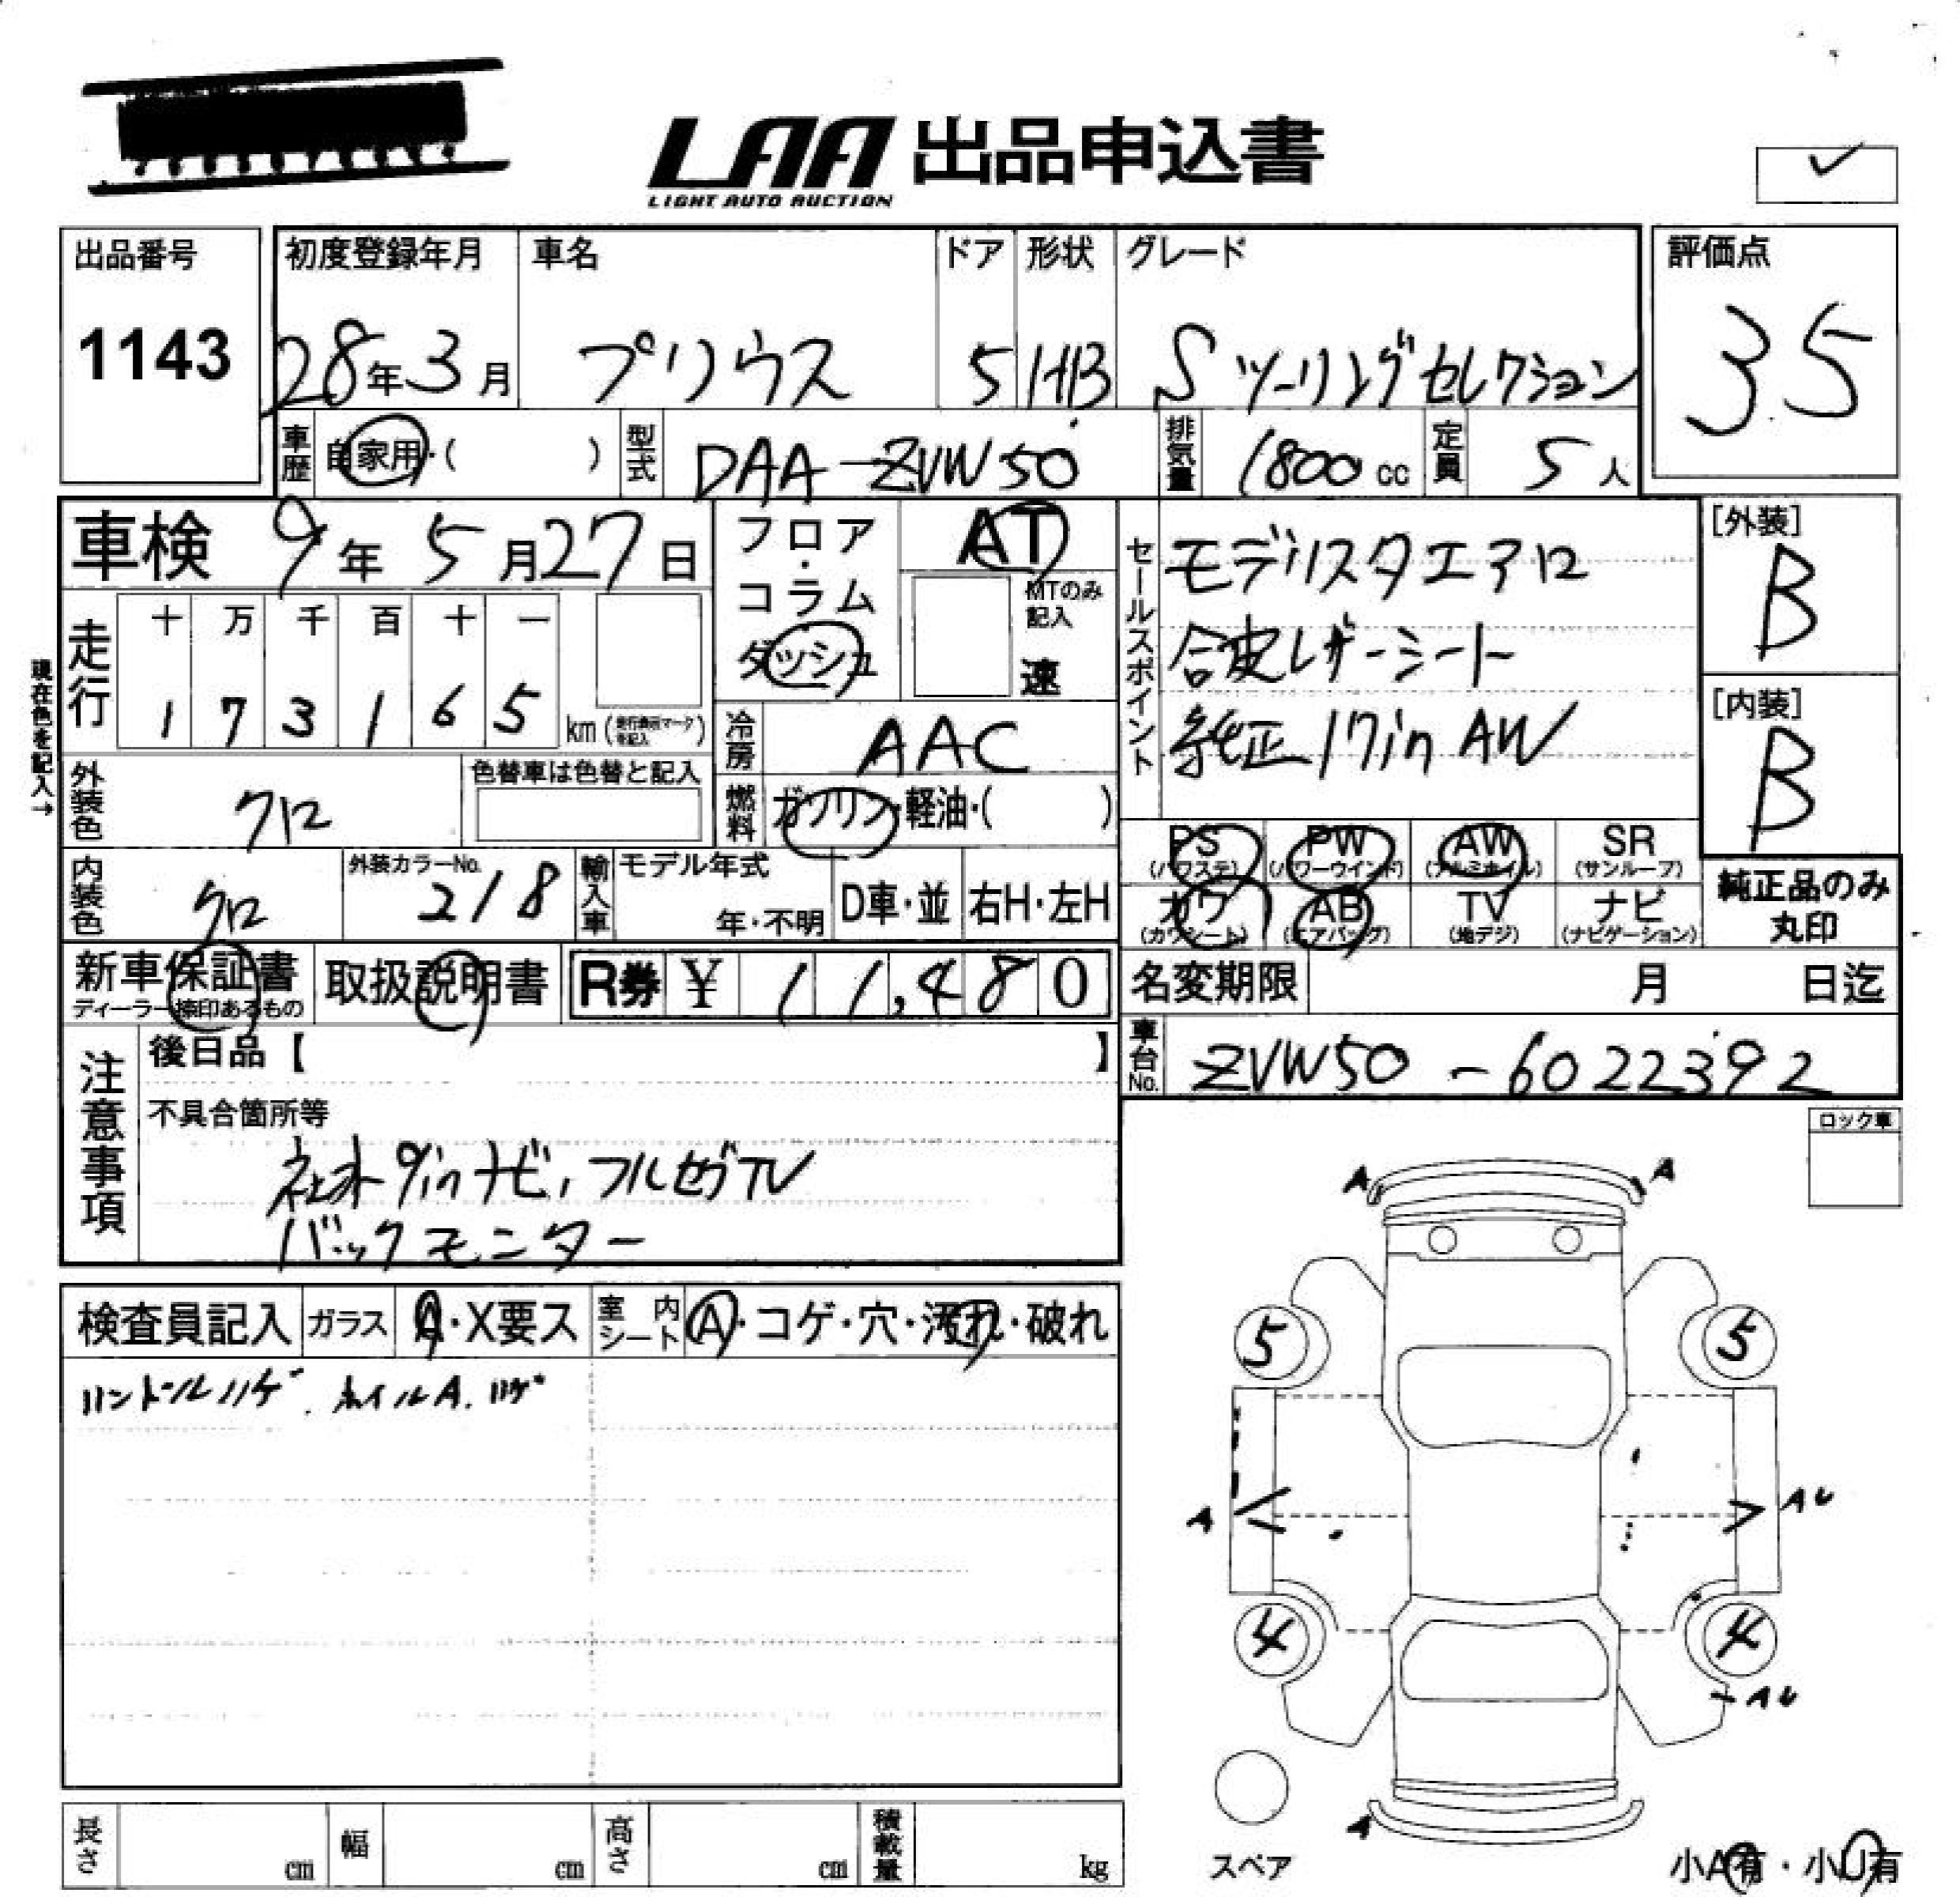 LAA 出品申込書
LIGHT AUTO AUCTION
出品番号
1143
初度登録年月
28年3月
車名
プリウス
ドア
5
形状
HB
グレード
Sツーリングセレクション
評価点
35
車歴
自家用・( )
型式
DAA-ZVW50
排気量
1800cc
定員
5人
車検 9年5月27日
フロア・コラム
ダッシュ
AT
MTのみ記入
速
セールスポイント
モデリスタエアロ
合皮レザーシート
純正17inAW
[外装]
B
[内装]
B
現在色を記入→
走行
十 万 千 百 十 一
1 7 3 1 6 5
km(走行換算マークを記入)
冷房
AAC
外装色
クロ
色替車は色替と記入
燃料
ガソリン・軽油・( )
PS
(パワステ)
PW
(パワーウインド)
AW
(アルミホイル)
SR
(サンルーフ)
内装色
クロ
外装カラーNo.
218
輸入車
モデル年式
年・不明
D車・並
右H・左H
カワ
(カワシート)
AB
(エアバッグ)
TV
(地デジ)
ナビ
(ナビゲーション)
純正品のみ
丸印
新車保証書
ディーラー捺印あるもの
取扱説明書
R券 ¥ 11,480
名変期限 月 日迄
車台No.
ZVW50-6022392
注意事項
後日品【 】
不具合箇所等
社外9inナビ,フルセグTV
バックモニター
ロック車
検査員記入
ガラス
A・X要ス
室内シート
A・コゲ・穴・汚れ・破れ
ハンドルハゲ. ホイルA.ハゲ
A
A
5
5
A
AU
4
4
AU
A
スペア
小A有・小U有
長さ
cm
幅
cm
高さ
cm
積載量
kg